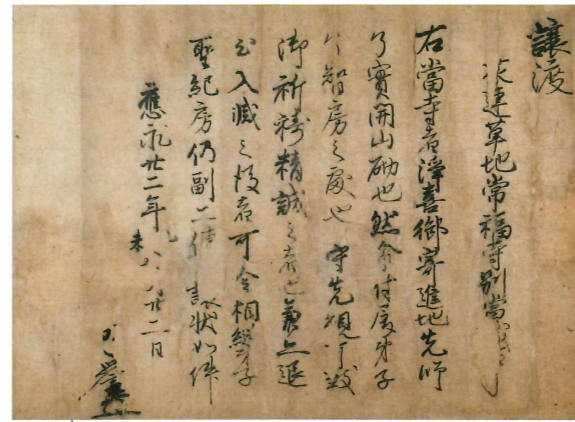 讓渡
常福寺別當
右當寺者淨喜御寄進地先師
了實開山砌也然今付屬弟子
了智房之處也守先規可致
御祈禱精誠之者也兼又退
入滅之後者可令相續弟子
聖紀房仍副二 讓狀如件
應永廿二年 未 八 廿二日